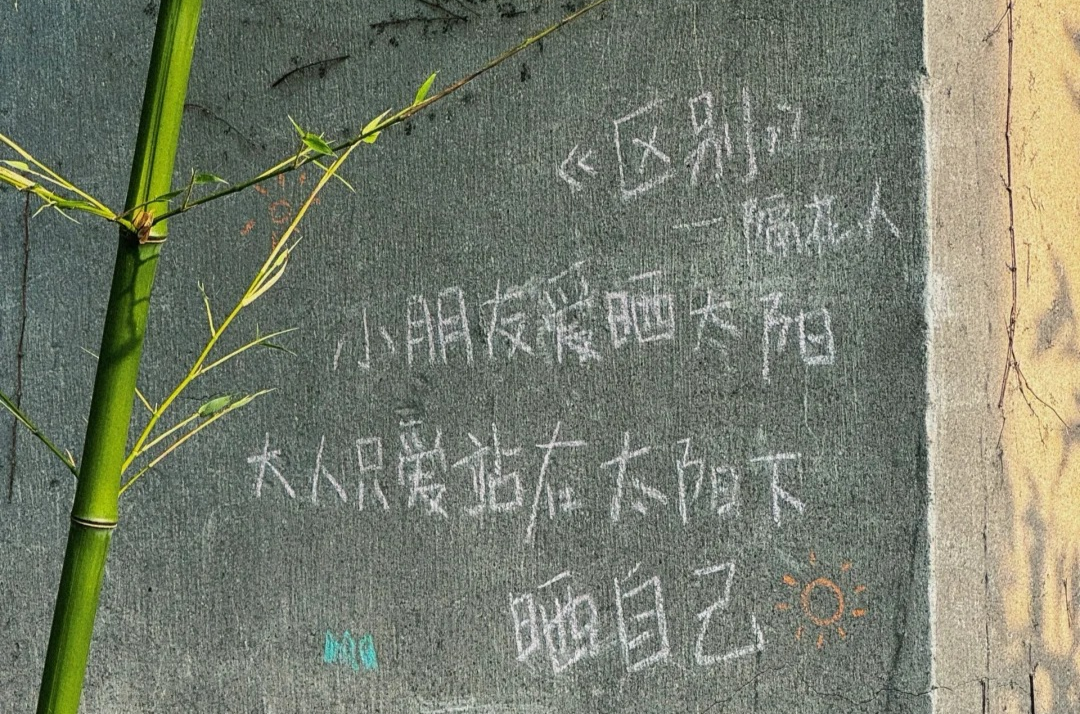 《区别》
一隔花人
小朋友爱晒太阳
大人只爱站在太阳下
晒自己